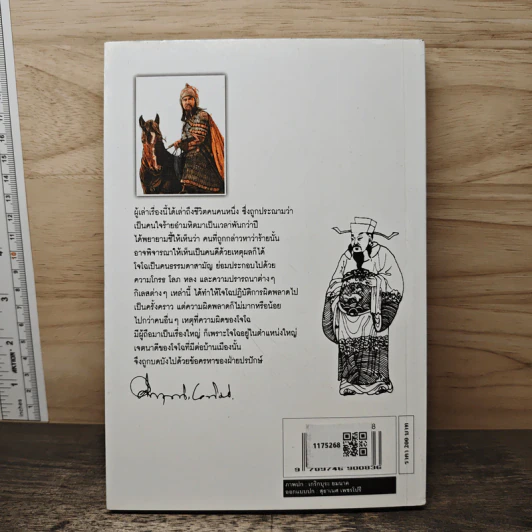 ผู้เล่าเรื่องนี้ได้เล่าถึงชีวิตคนคนหนึ่ง ซึ่งถูกประณามว่า
เป็นคนใจร้ายอำมหิตมาเป็นเวลาพันกว่าปี
ได้พยายามชี้ให้เห็นว่า คนที่ถูกกล่าวหาว่าร้ายนั้น
อาจพิจารณาให้เห็นเป็นคนดีด้วยเหตุผลก็ได้
โจโฉเป็นคนธรรมดาสามัญ ย่อมประกอบไปด้วย
ความโกรธ โลภ หลง และความปรารถนาต่างๆ
กิเลสต่างๆ เหล่านี้ ได้ทำให้โจโฉปฏิบัติการผิดพลาดไป
เป็นครั้งคราว แต่ความผิดพลาดก็ไม่มากหรือน้อย
ไปกว่าคนอื่นๆ เหตุที่ความผิดของโจโฉ
มีผู้ถือมาเป็นเรื่องใหญ่ ก็เพราะโจโฉอยู่ในตำแหน่งใหญ่
เจตนาดีของโจโฉที่มีต่อบ้านเมืองนั้น
จึงถูกบดบังไปด้วยข้อครหาของฝ่ายปรปักษ์
1175268
9 789746 900836
ภาพปก : เกริกบุระ ยมนาค
ออกแบบปก : สุธาเนศ เพชรโปรี
ราคา 200 บาท